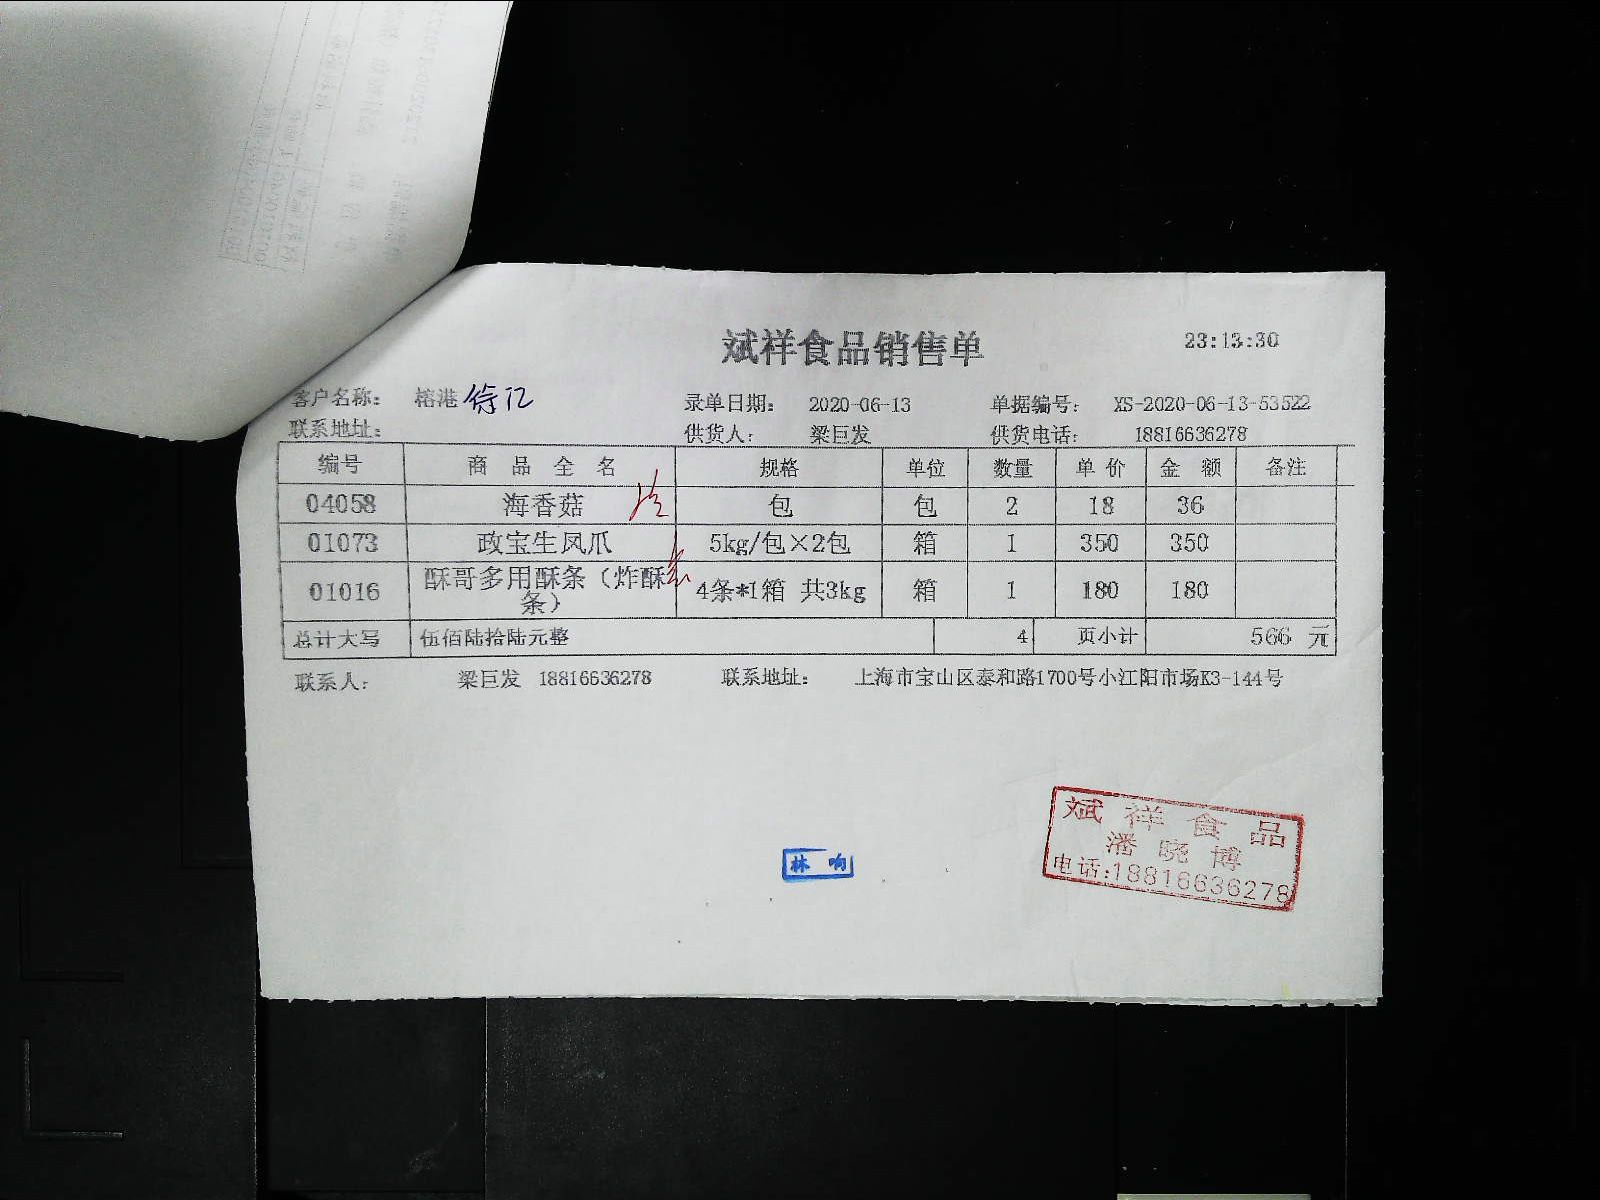 斌祥食品销售单 23:13:30
客户名称： 榕港 录单日期： 2020-06-13 单据编号： XS-2020-06-13-53522
联系地址： 供货人： 梁巨发 供货电话： 18816636278
编号 商品全名 规格 单位 数量 单价 金额 备注
04058 海香菇 包 包 2 18 36
01073 政宝生凤爪 5kg/包×2包 箱 1 350 350
01016 酥哥多用酥条（炸酥条） 4条*1箱 共3kg 箱 1 180 180
总计大写 伍佰陆拾陆元整 4 页小计 566 元
联系人： 梁巨发 18816636278 联系地址： 上海市宝山区泰和路1700号小江阳市场K3-144号
斌祥食品
潘晓博
电话:18816636278
林响